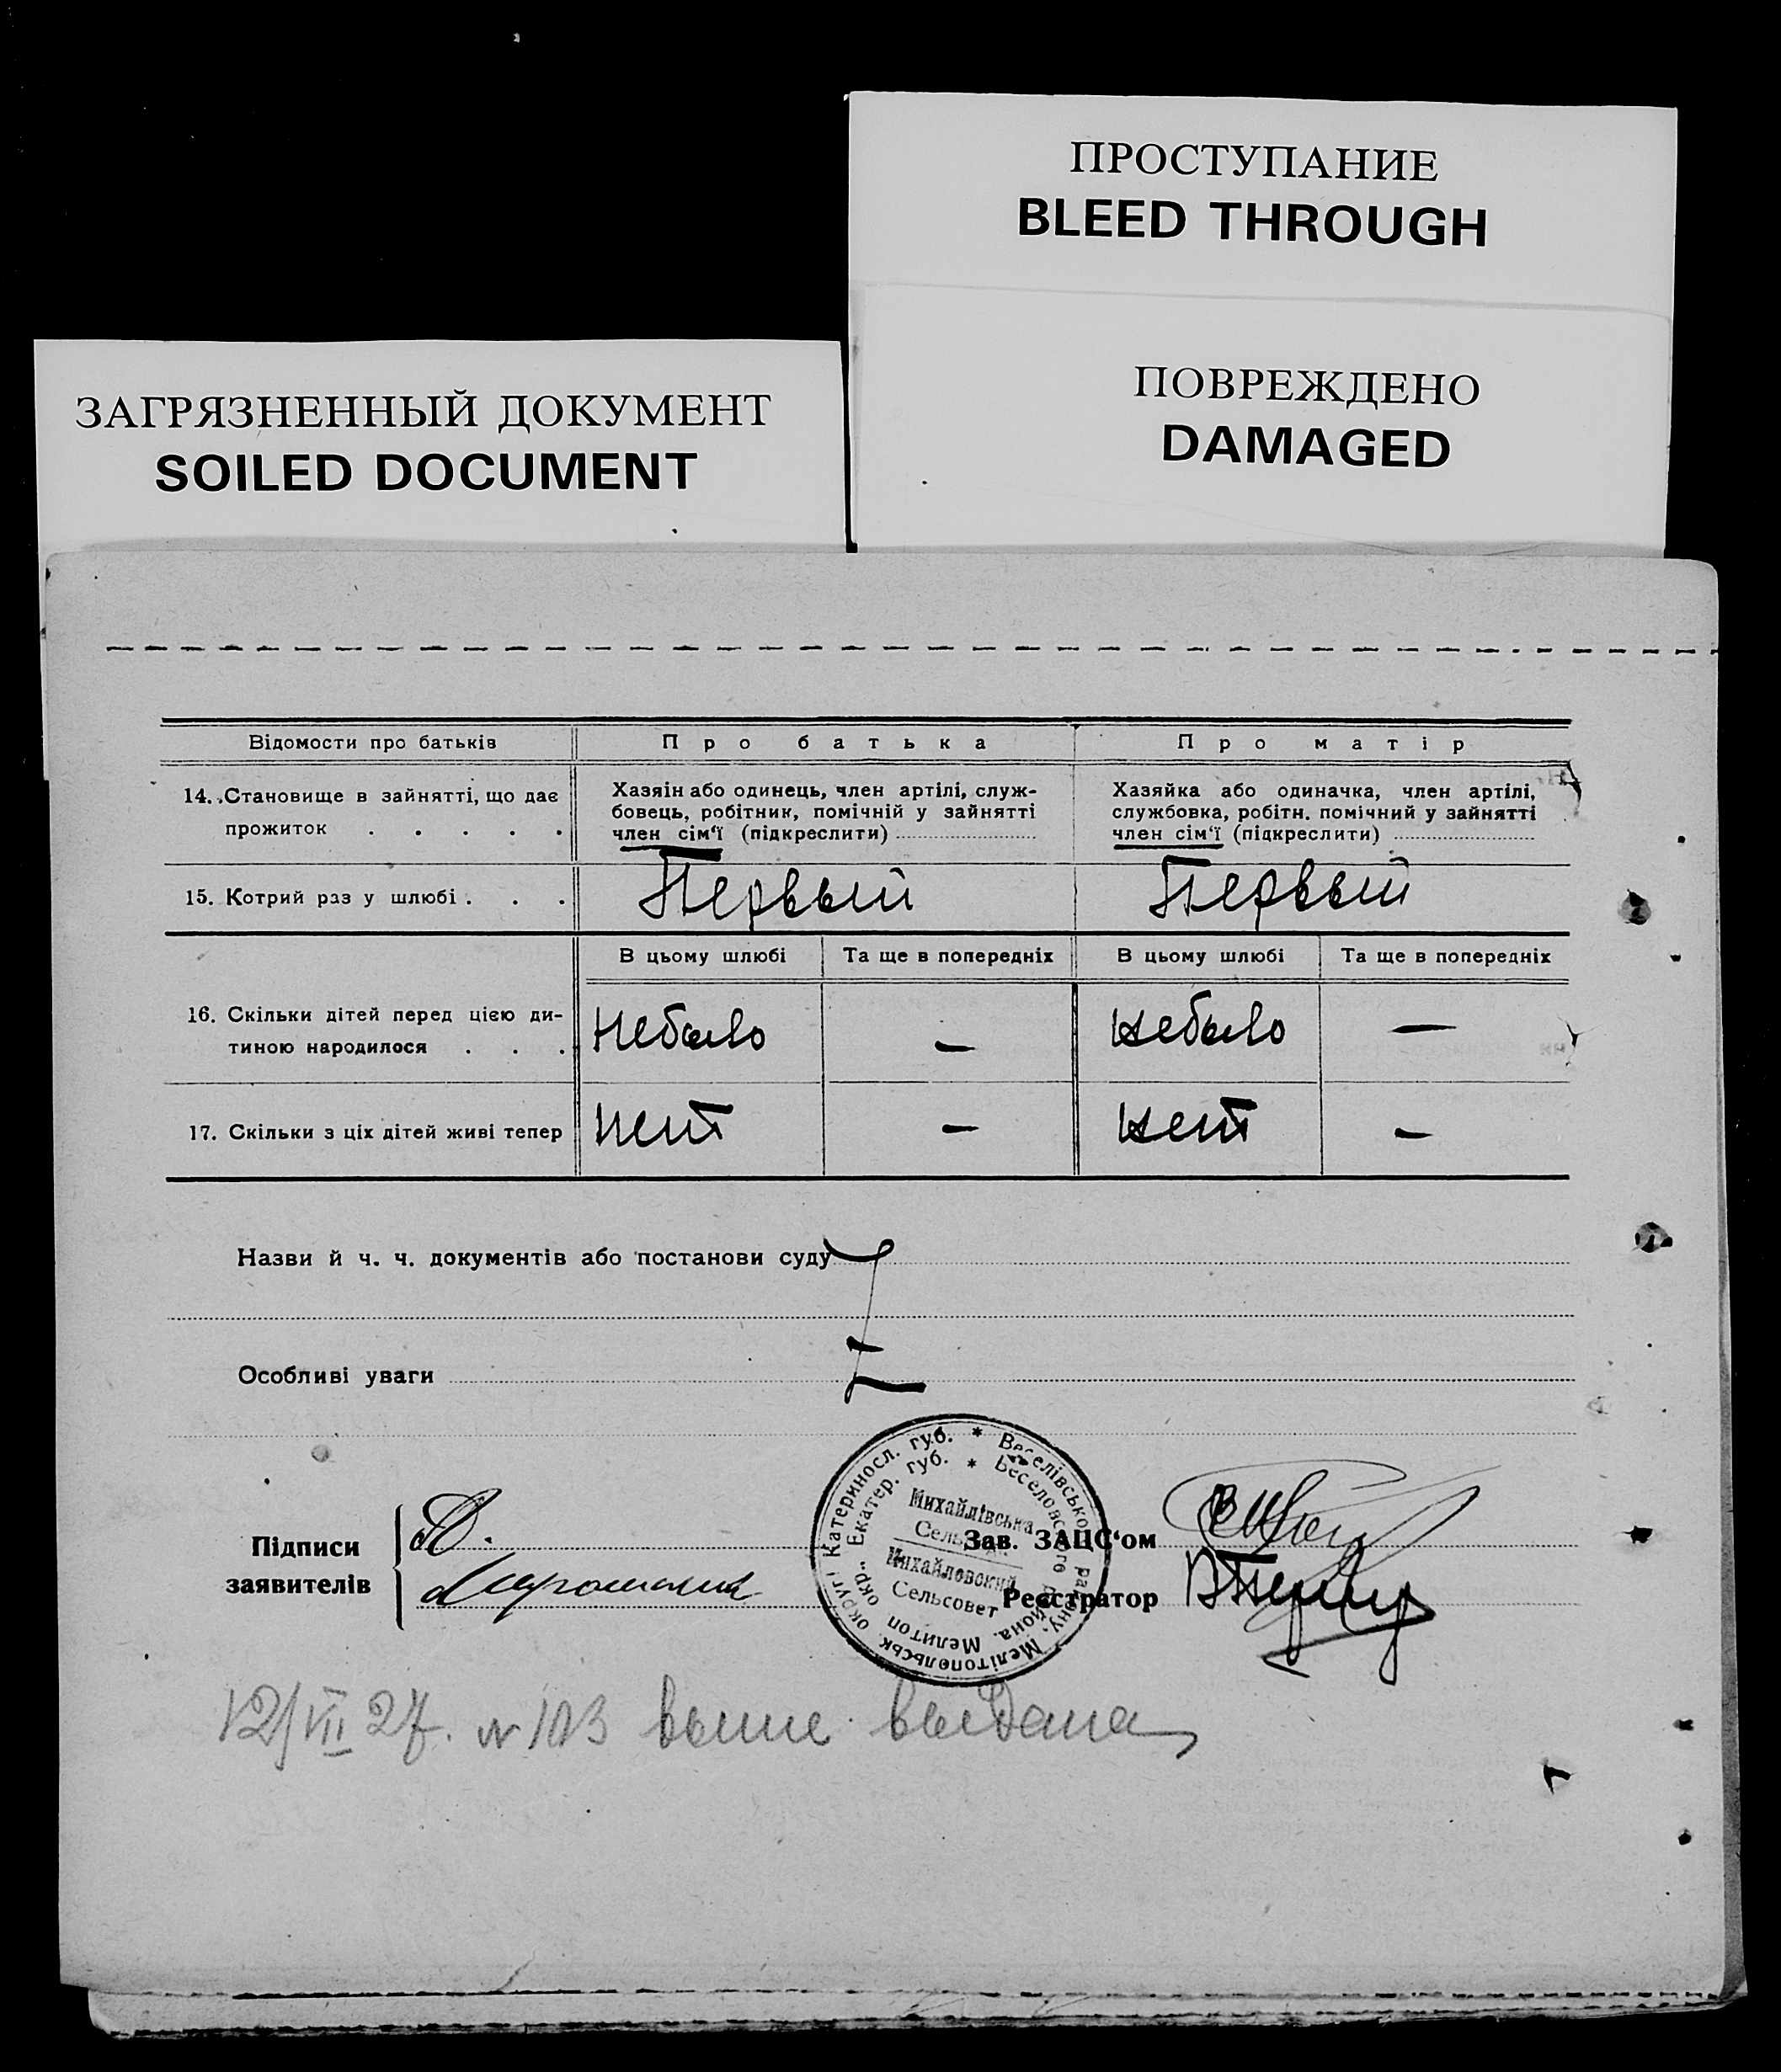 ПРОСТУПАНИЕ
BLEED THROUGH
ПОВРЕЖДЕНО
DAMAGED
ЗАГРЯЗНЕННЫЙ ДОКУМЕНТ
SOILED DOCUMENT
Відомости про батьків
Про батька
Про матір
14. Становище в зайнятті, що дає
прожиток . . . . .
Хазяін або одинець, член артілі, служ-
бовець, робітник, помічній у зайнятті
член сім'ї (підкреслити)
Хазяйка або одиначка, член артілі,
службовка, робітн. помічний у зайнятті
член сім'ї (підкреслити)
15. Котрий раз у шлюбі . . .
Первый
Первый
В цьому шлюбі
Та ще в попередніх
В цьому шлюбі
Та ще в попередніх
16. Скільки дітей перед цією ди-
тиною народилося . . .
Небыло
—
небыло
—
17. Скільки з ціх дітей живі тепер
Нет
—
нет
—
Назви й ч. ч. документів або постанови суду
Особливі уваги
Підписи
заявителів
Катериносл. губ. * Веселівського району, Мелітопельськ округи
Екатер. губ. * Веселовского района. Мелитоп окр.
Михайлівська
Михайловский
Сельсовет
Зав. ЗАЦС'ом
Реєстратор
12/VII 27. N 103 выдана